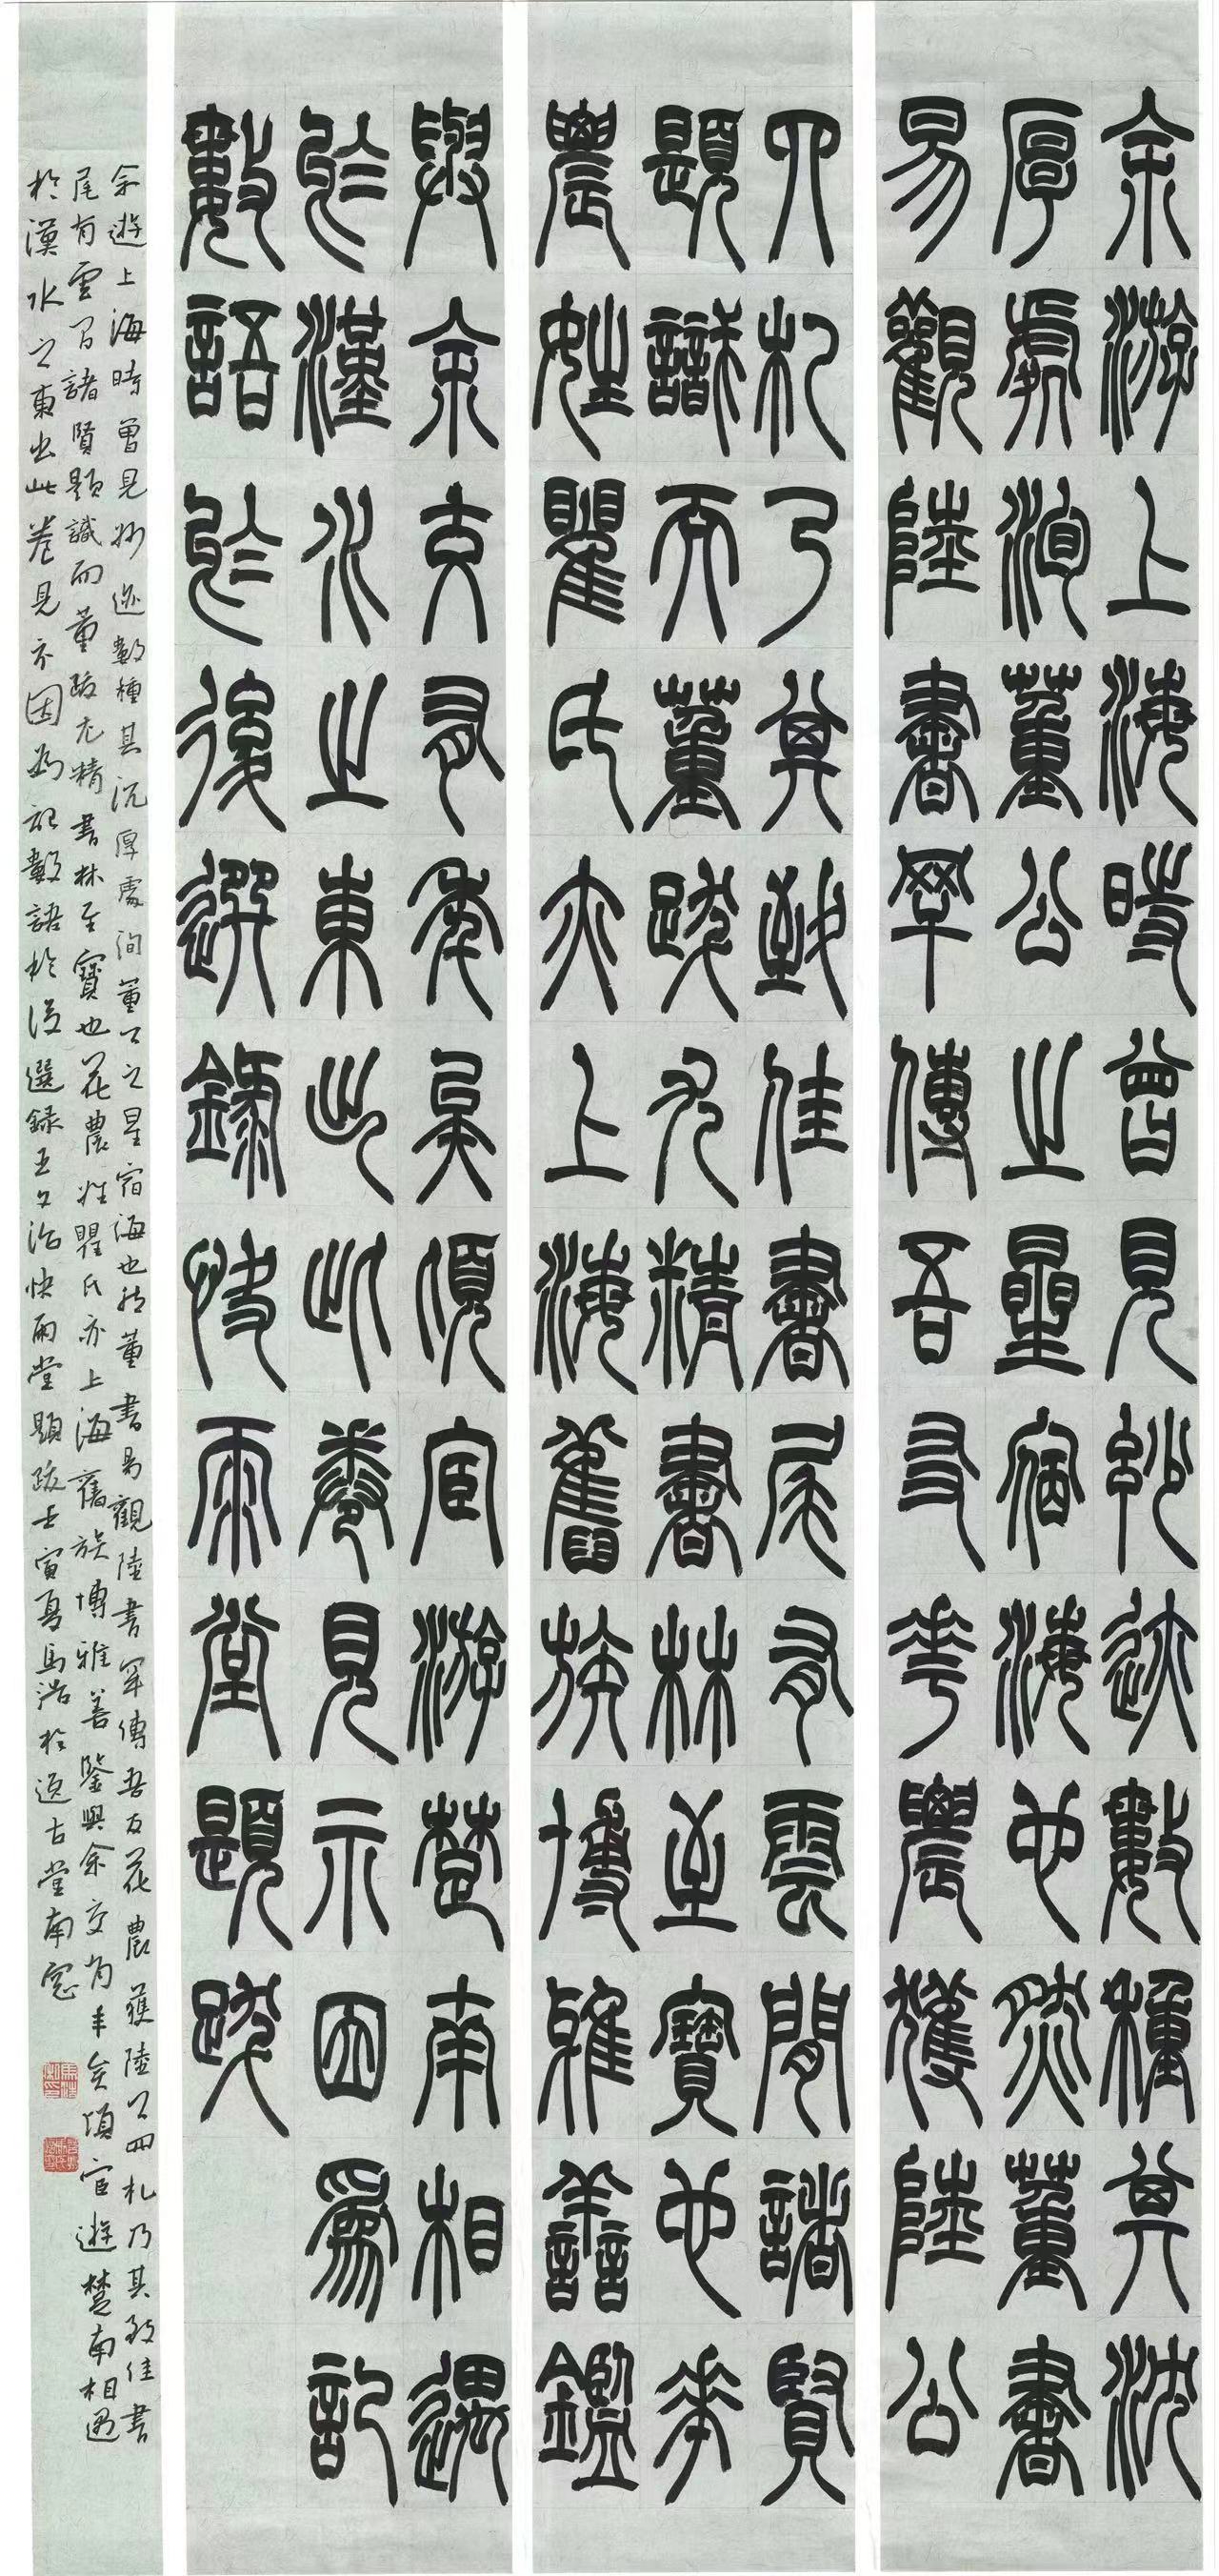 余游上海時曾見妙迹數種其沈
厚處洵董公之星宿海也然董書
易觀陸書罕傳吾友花農獲陸公
四札乃其致佳書尾有雲間諸賢
題識而董跋尤精書林至寶也花
農姓瞿氏亦上海舊族博雅善鑑
與余交有年矣頃宦游楚南相遇
於漢水之東出此卷見示因為記
數語於後選錄快雨堂題跋
余遊上海時曾見妙迹數種其沉厚處洵董公之星宿海也然董書易觀陸書罕傳吾友花農獲陸公四札乃其致佳書
尾有雲間諸賢題識而董跋尤精書林至寶也花農姓瞿氏亦上海舊族博雅善鑒與余交有年矣頃宦遊楚南相遇
於漢水之東出此卷見示因為記數語於後選録王文治快雨堂題跋壬寅夏馬浩於適古堂南窓